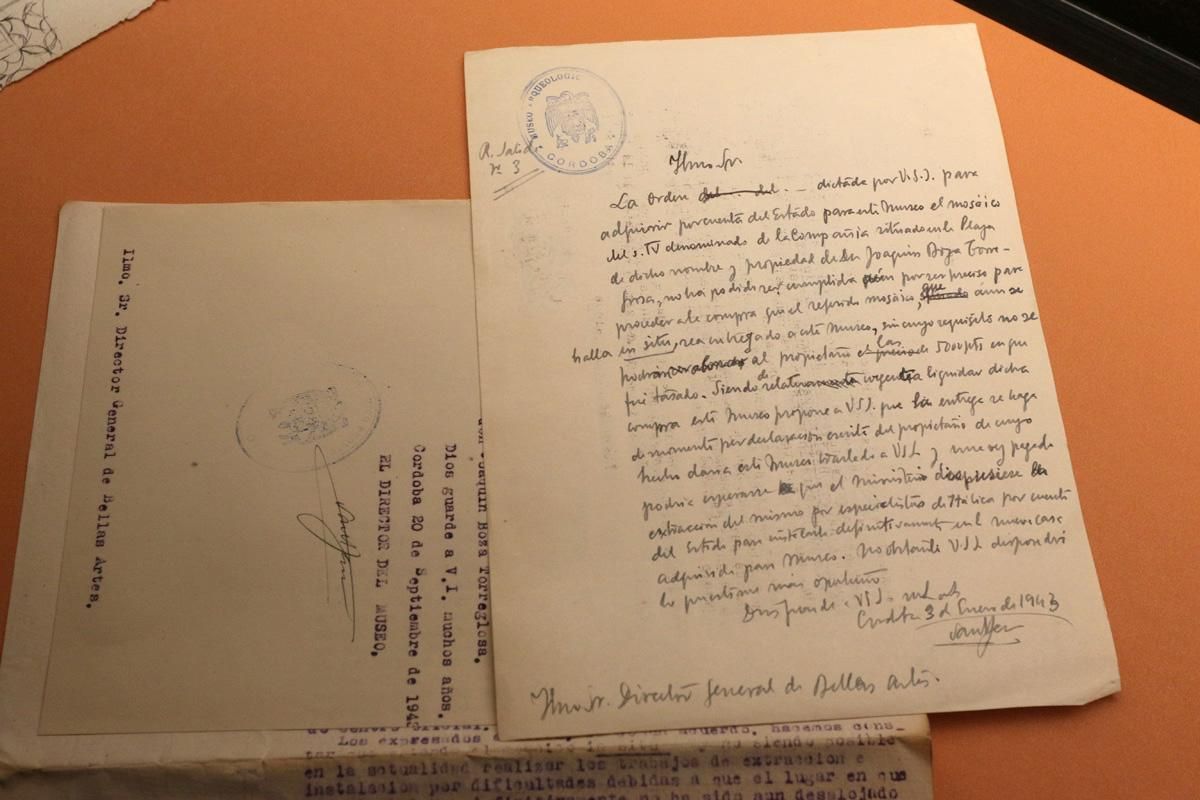 MUSEO ARQUEOLOGIC
CORDOBA
R. Salida
nº 3
Ilmo Sr.
La orden del . del . — dictada por V.S.I. para
adquirir por cuenta del Estado para este Museo el mosáico
del s. IV denominado de la Compañia situado en la Plaza
de dicho nombre y propiedad de Dn Joaquin Boza Torre-
glosa, no ha podido ser cumplida aún por ser preciso para
proceder a la compra que el referido mosáico, que aún se
halla in situ, sea entregado a este Museo, sin cuyo requisito no se
podrán ser abonadas al propietario las 5000 pts en que
fué tasado. Siendo de relativa urgencia liquidar dicha
compra este Museo propone a VSI. que la entrega se haga
de momento por declaración escrita del propietario de cuyo
hecho daria este Museo traslado a VSI. y una vez pagado
podria esperarse a que el Ministerio dispusiese la
extracción del mismo por especialistas de Itálica por cuenta
del Estado para instalarlo definitivamente en la nueva casa
adquirida para Museo. No obstante V.S.I. dispondrá
lo que estime más oportuno
Dios guarde a VSI. m. a.
Cordoba 3 de Enero de 1943
Ilmo Sr. Director General de Bellas Artes.
Joaquin Boza Torreglosa.
Dios guarde a V.I. muchos años.
Cordoba 20 de Septiembre de 194
EL DIRECTOR DEL MUSEO,
Ilmo. Sr. Director General de Bellas Artes.
Los expresados acuerdo, hacemos cons_
in situ y no siendo posible
en la actualidad realizar los trabajos de extracción e
instalacion por dificultades debidas a que el lugar en que
no ha sido aun desalojado